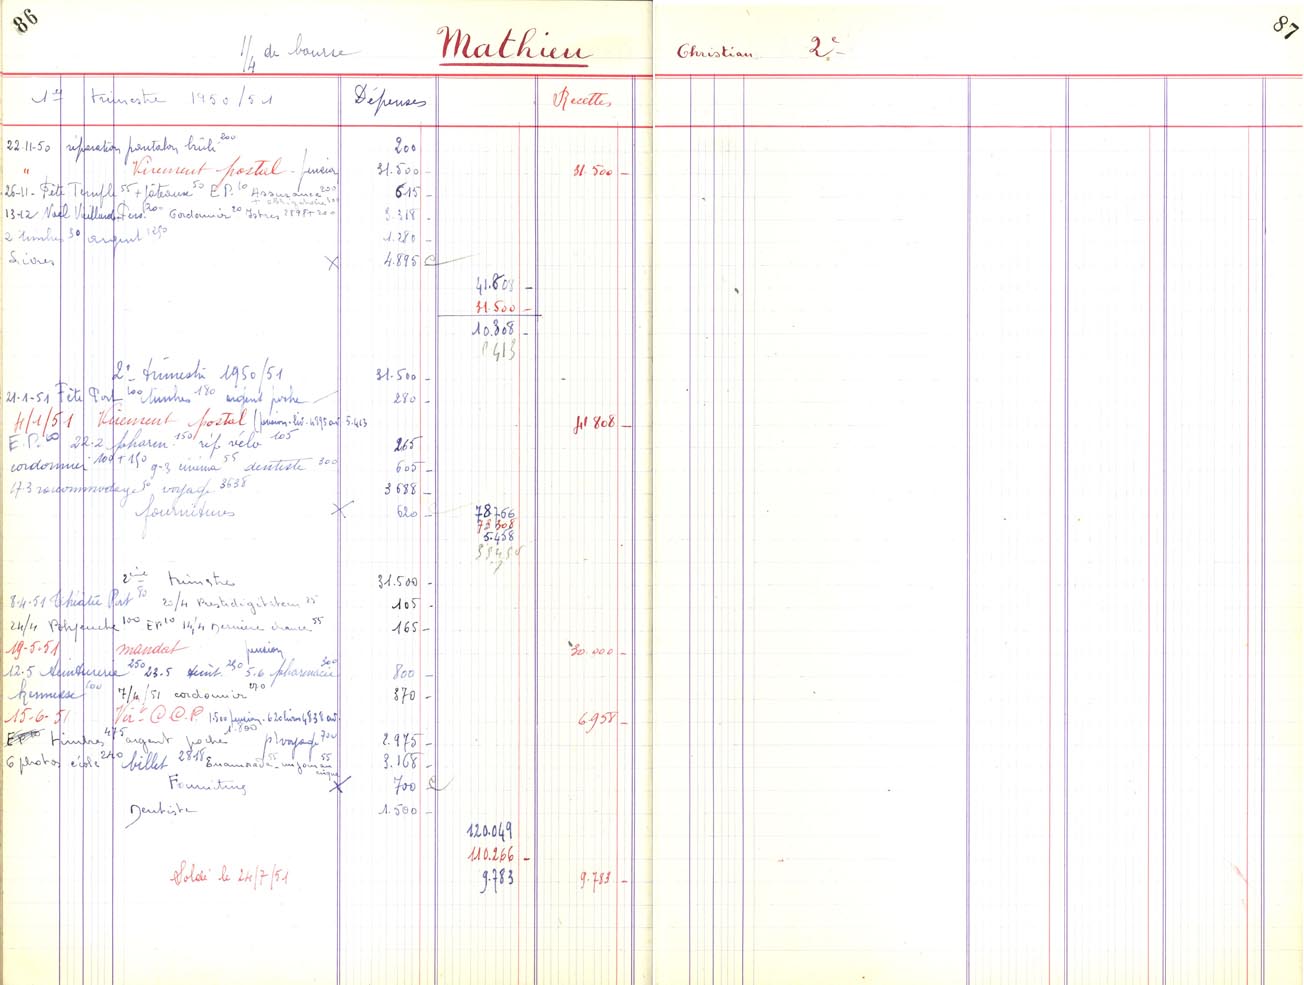 86
1/4 de bourse Mathieu Christian 2e 87
1er trimestre 1950/51 Dépenses Recettes
22-11-50 réparation pantalon brûlé 200 200
" Virement postal pension 31.500 - 31.500 -
26-11- Fête Temple 55 + gâteaux 50 E.P. 10 Assurance 200 615 -
13-12 Noël Vieillards Pers. 200 Cordonnier 20 Istres 2898 + 200 3.318 -
2 timbres 30 argent 1250 1.280 -
Livres X 4.895 C
41.808 -
31.500 -
10.308 -
5413
2e trimestre 1950/51 31.500 -
21-1-51 Fête Port 100 timbres 180 argent poche 280 -
4/1/51 Virement postal (pension. liv. 4895 ou 5.413 41 808 -
E.P. 10 22-2 pharm. 150 rép. vélo 105 265
cordonnier 100 + 150 9-3 cinéma 55 dentiste 300 605 -
17-3 raccommodage 50 voyage 3638 3 688 -
fournitures X 620 - 78 766
73 308
5.458
2ème trimestre 31.500 -
8-4-51 Théâtre Port 80 20/4 Prestidigitateur 25 105 -
24/4 100 E.P. 10 14/4 Dernière chance 55 165 -
19-5-51 mandat pension 30.000 -
12-5 teinturerie 250 23.5 teint. 250 5-6 pharmacie 300 800 -
Kermesse 100 7/4/51 cordonnier 270 370 -
15-6-51 Virt C.C.P. 1500 pension. 620 livres 4838 6.958 -
timbres 475 argent poche 1.800 pr voyage 700 2.975 -
6 photos école 240 billet 2818 55 55 3.168 -
Fournitures X 700 C
Dentiste 1.500 -
120.049
110.266 -
Soldé le 24/7/51 9.783 9.783 -